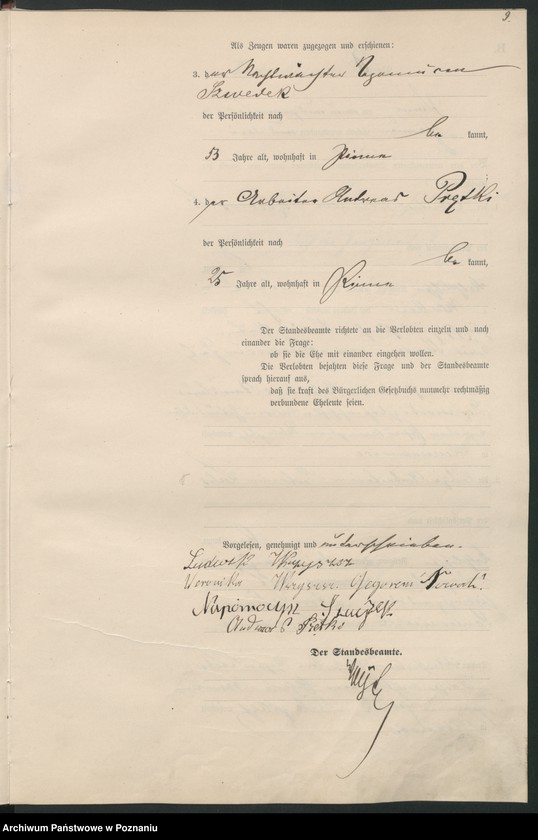 9.
Als Zeugen waren zugezogen und erschienen:
3. der Nachtwächter
Szwedek
der Persönlichkeit nach
be kannt,
53 Jahre alt, wohnhaft in Pinne
4. der Arbeiter Andreas Prętki
der Persönlichkeit nach
be kannt,
25 Jahre alt, wohnhaft in Pinne
Der Standesbeamte richtete an die Verlobten einzeln und nach
einander die Frage:
ob sie die Ehe mit einander eingehen wollen.
Die Verlobten bejahten diese Frage und der Standesbeamte
sprach hierauf aus,
daß sie kraft des Bürgerlichen Gesetzbuchs nunmehr rechtmäßig
verbundene Eheleute seien.
Vorgelesen, genehmigt und unterschrieben.
Ludwik
Weronika
Der Standesbeamte.
Archiwum Państwowe w Poznaniu